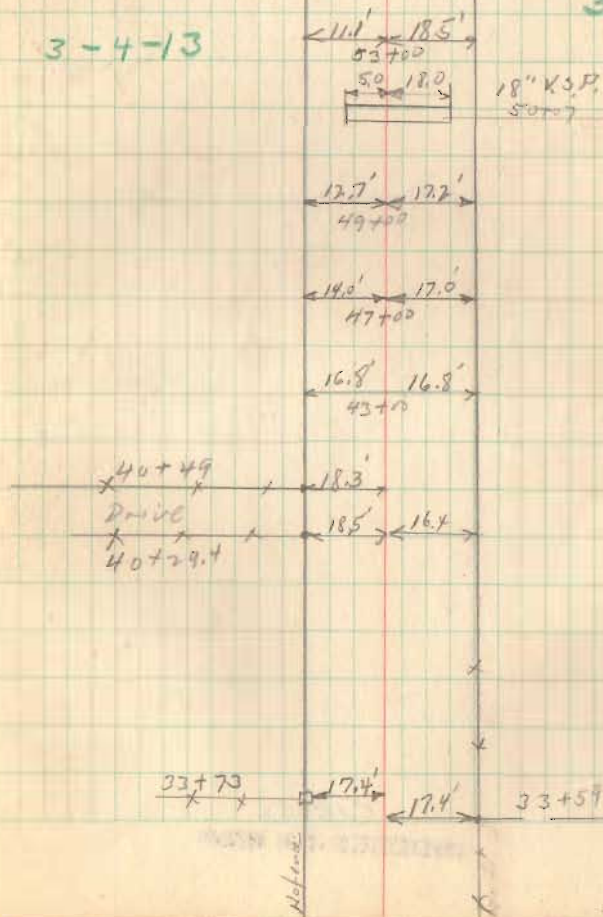 3-4-13
11.1' 18.5'
53+00
5.0 18.0
18" V.S.P.
50+07
12.7' 17.2'
49+00
14.0' 17.0'
47+00
16.8' 16.8'
43+00
40+49
18.3'
Drive
18.5' 16.4
40+29.4
33+73
17.4'
17.4'
33+59